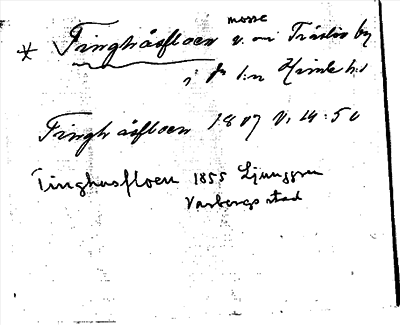 mosse
* Tinghåsfloen v. om Träslöv by
i d:o s:n Himle hd
Tinghåsfloen 1807 V. 14:50
Tinghusfloen 1855 Ljunggren
Varbergs stad